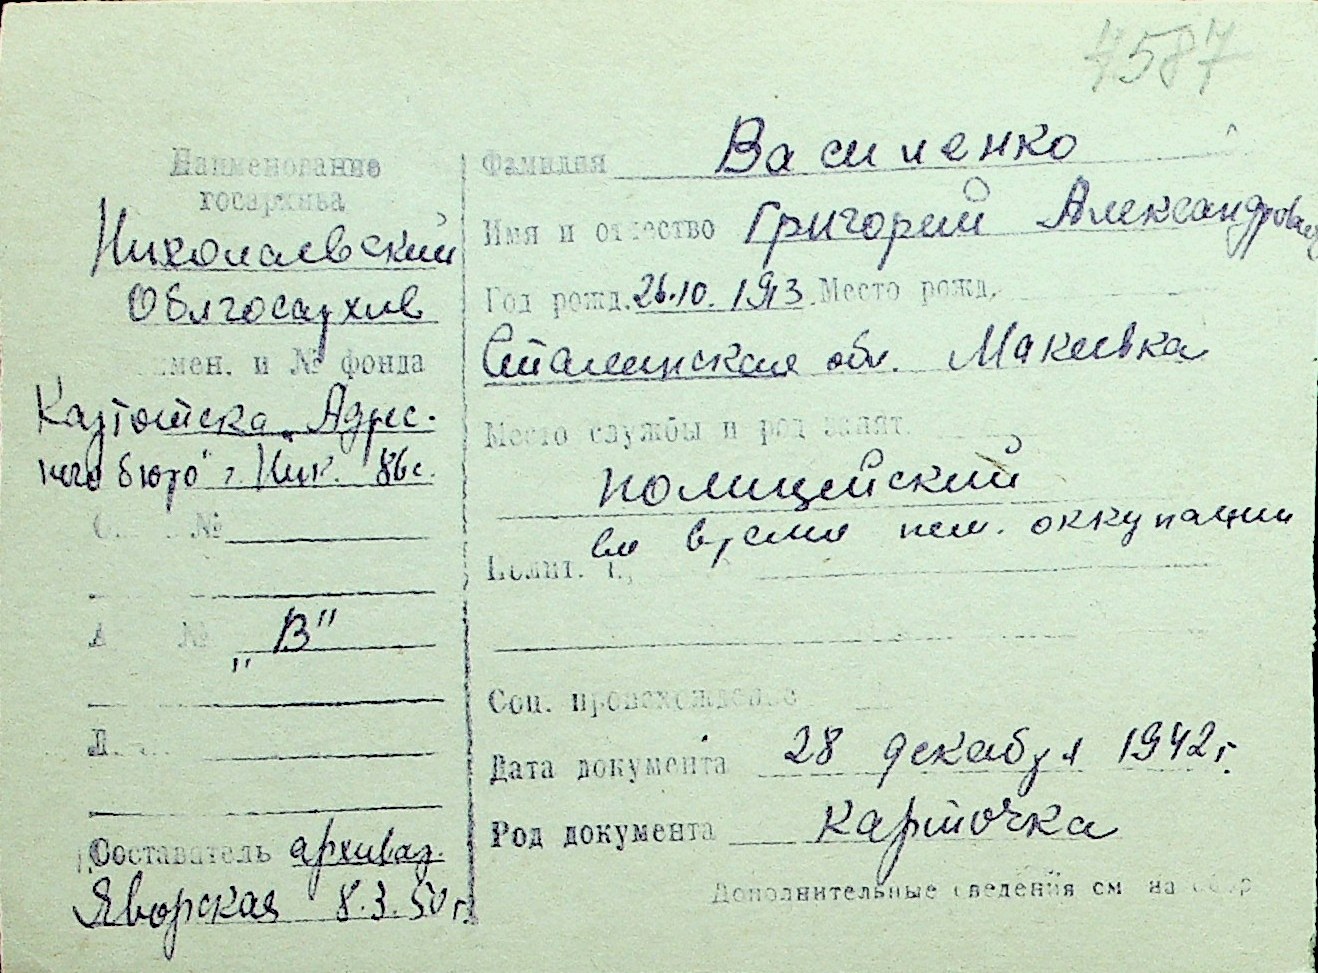 7587
Наименование
госархива
Николаевский
Облгосархив
имен. и № фонда
Картотека „Адрес-
ного бюро" г. Ник. 86с.
№
№ „В"
Л.
Составитель архивар.
Яворская 8.3.50 г.
Фамилия Василенко
Имя и отчество Григорий Александрович
Год рожд. 26.10.1913 Место рожд.
Сталинская обл. Макеевка
Место службы и род занят.
полицейский
во время нем. оккупации
Соц. происхождение
Дата документа 28 декабря 1942 г.
Род документа карточка
Дополнительные сведения см на обор